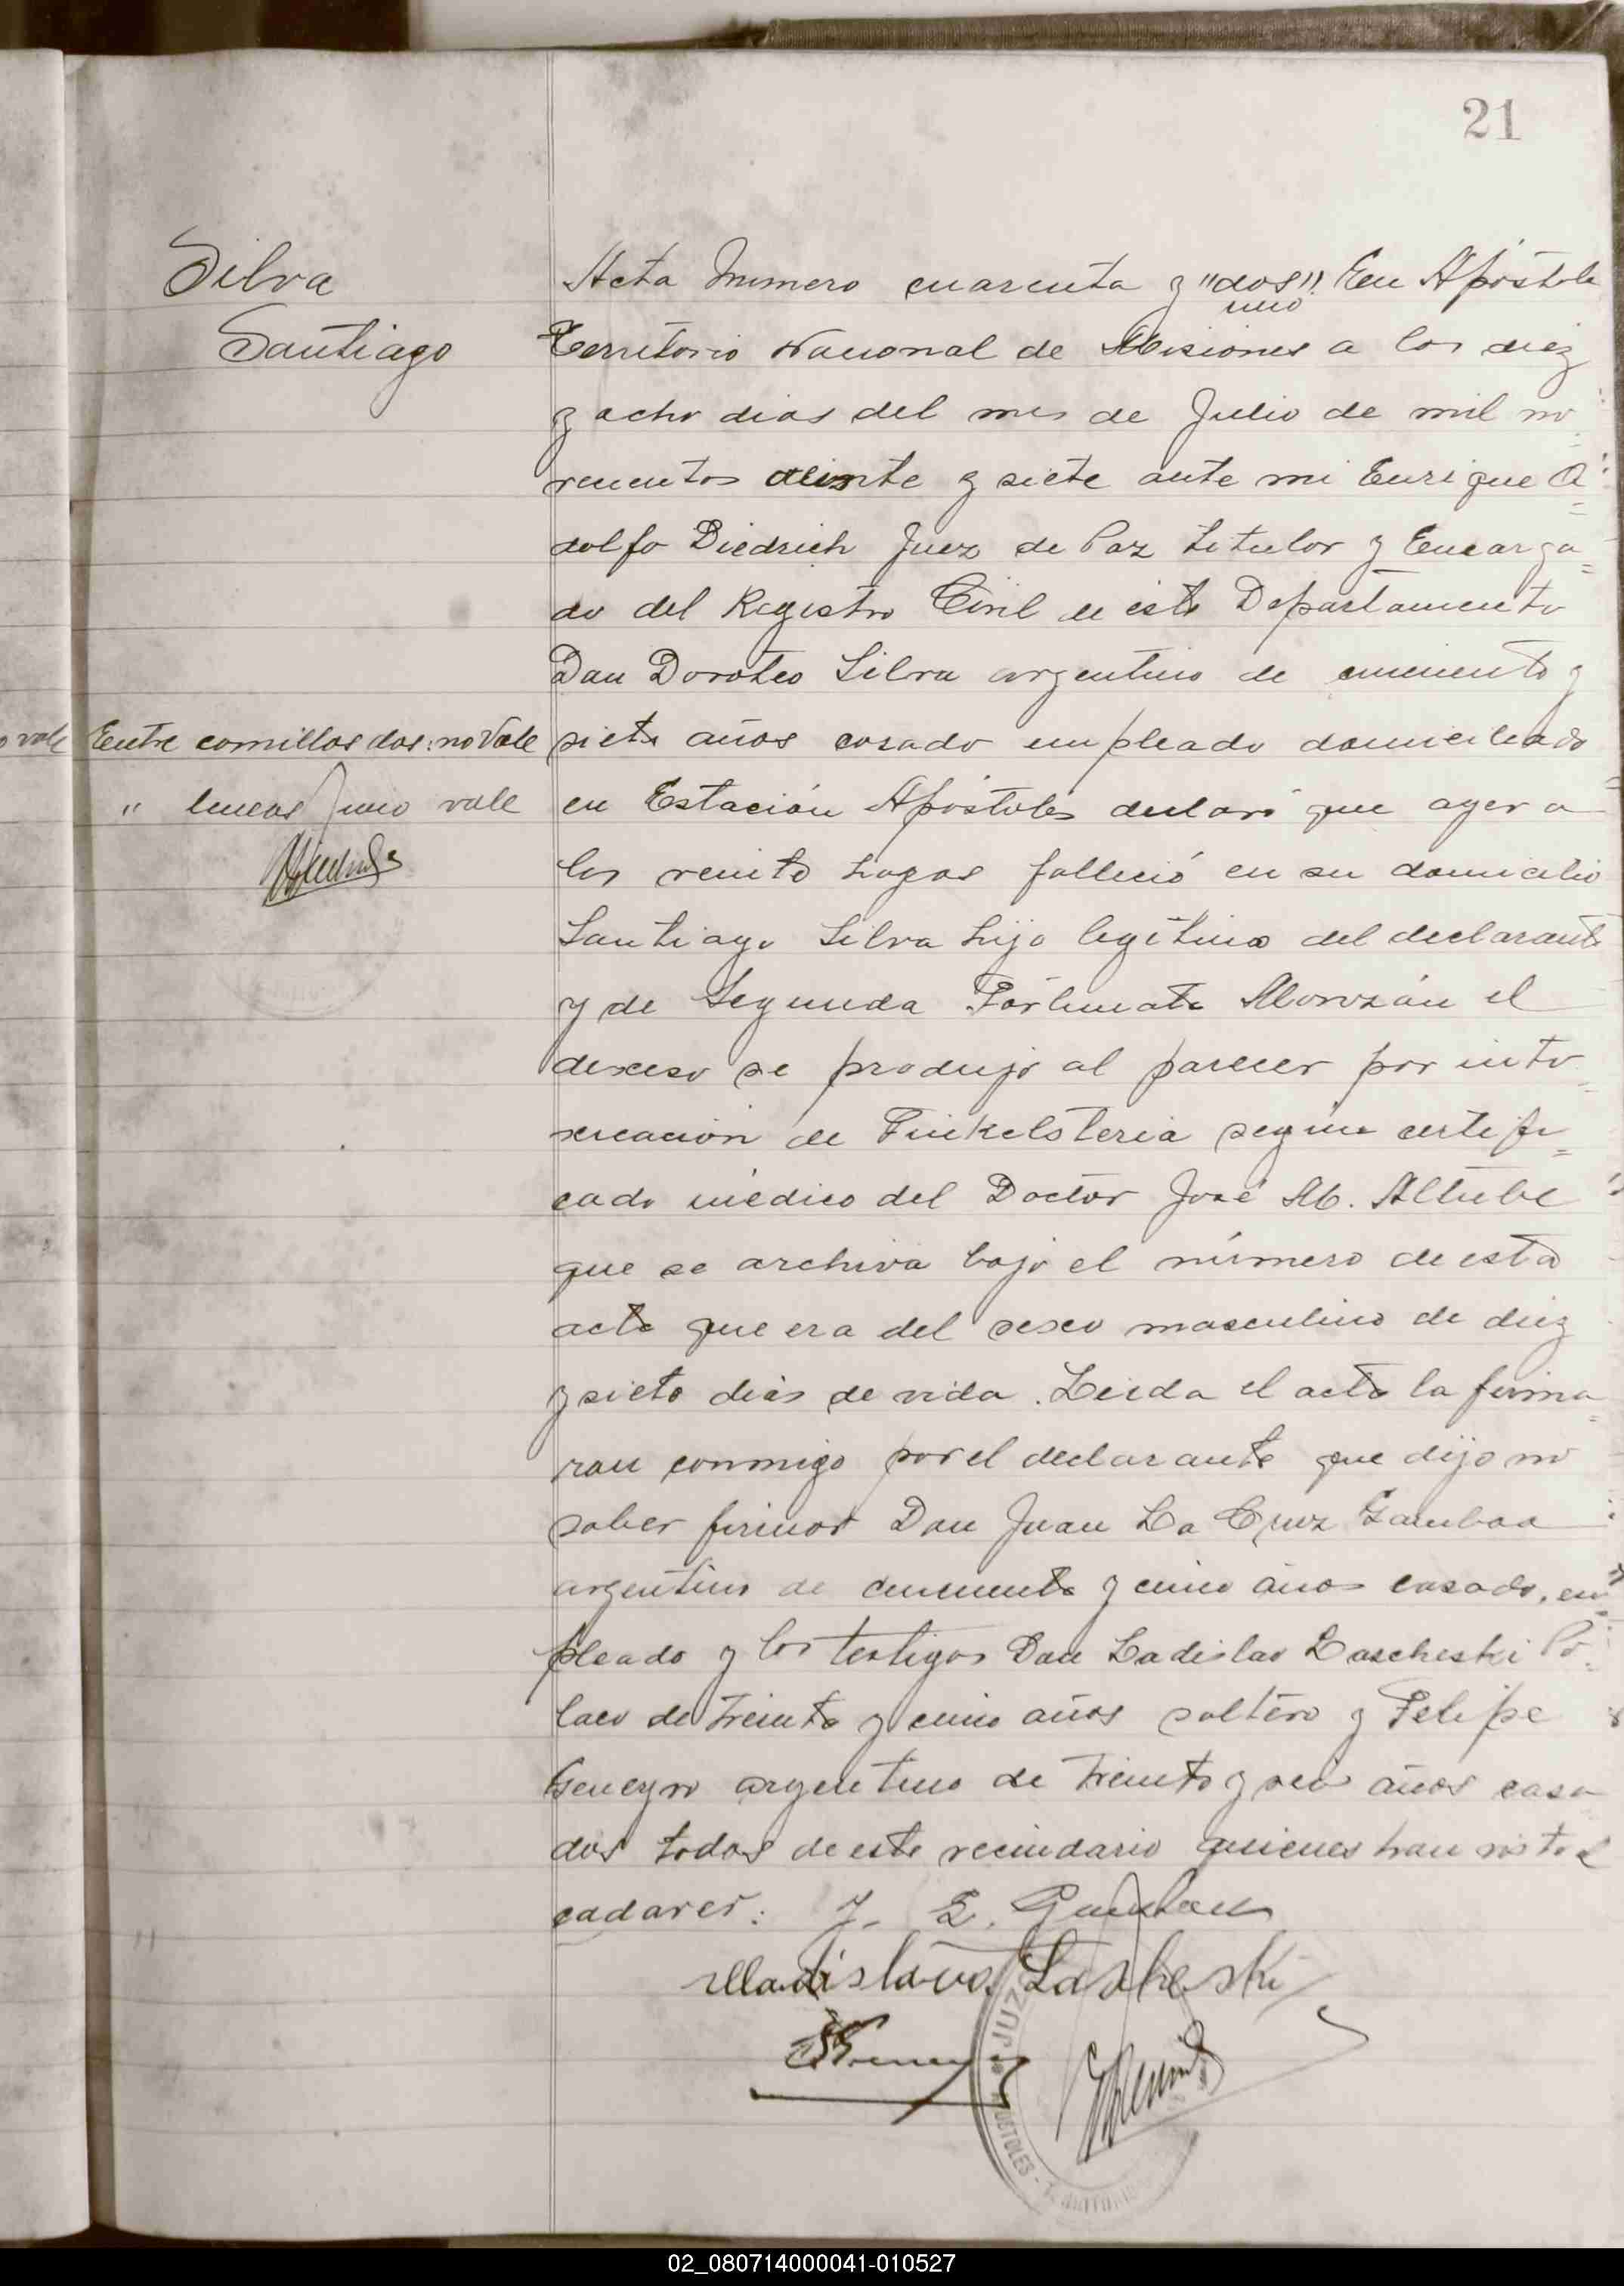 21
Silva
Santiago
Acta Numero cuarenta y "dos". En Apóstole
uno
Territorio Nacional de Misiones a los diez
y ocho dias del mes de Julio de mil no
vecientos veinte y siete ante mi Enrique A
dolfo Diedrich Juez de Paz titular y Encarga
do del Registro Civil de este Departamento
Don Doroteo Silva argentino de cincuenta y
siete años casado empleado domiciliado
o vale
Entre comillas dos: no Vale
" lineas uno vale
en Estación Apóstoles declaró que ayer a
las veinte horas falleció en su domicilio
Santiago Silva hijo legítimo del declarante
y de Segunda Fortunata Morozán el
deceso se produjo al parecer por into
xicación de Finkelsteria según certifi
cado médico del Doctor José M. Altube
que se archiva bajo el número de esta
acta que era del sexo masculino de diez
y siete dias de vida. Leida el acta la firma
ran conmigo por el declarante que dijo no
saber firmar Don Juan La Cruz Gamboa
argentino de cincuenta y cinco años casado, em
pleado y los testigos Don Ladislao Lascheski Po
laco de treinta y cinco años soltero y Felipe
Geneyro argentino de treinta y seis años casa
dos todos de este vecindario quienes han visto el
cadaver:
J. L. Gamboa
Wladislavo Lasheski
JUZ
OSTOLES
02_080714000041-010527